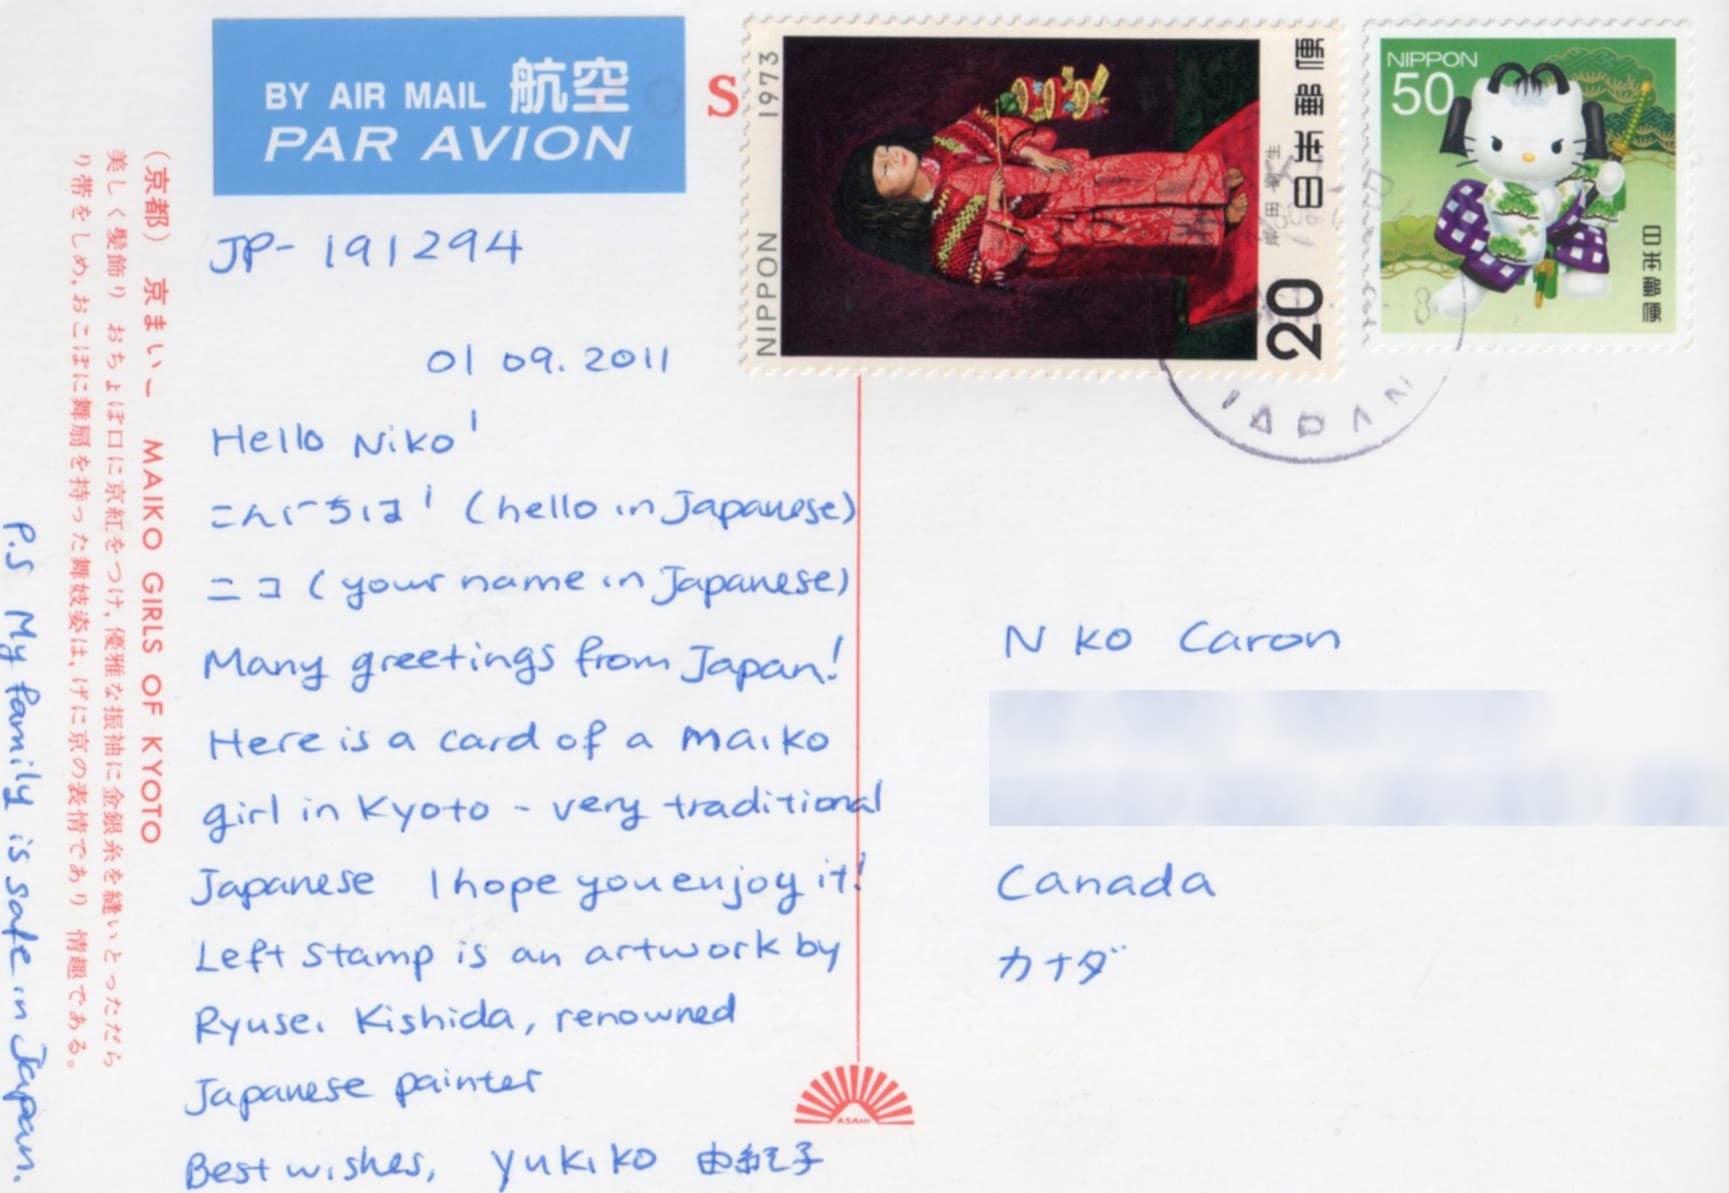 BY AIR MAIL 航空
PAR AVION
S
1973
NIPPON
日本郵便
20
NIPPON
50
日本郵便
JAPAN
(京都) 京まい― MAIKO GIRLS OF KYOTO
美しく髪飾り おちょぼ口に京紅をつけ、優雅な振袖に金銀糸を縫いとっただら
り帯をしめ、おこぼに舞扇を持った舞妓姿は、げに京の表情であり 情趣である。
JP-191294
01 09. 2011
Hello Niko!
こんにちは! (hello in Japanese)
ニコ (your name in Japanese)
Many greetings from Japan!
Here is a card of a maiko
girl in Kyoto - very traditional
Japanese I hope you enjoy it!
Left stamp is an artwork by
Ryusei Kishida, renowned
Japanese painter
Best wishes, Yukiko 由紀子
P.S My family is safe in Japan.
N ko Caron
Canada
カナダ
ASAHI